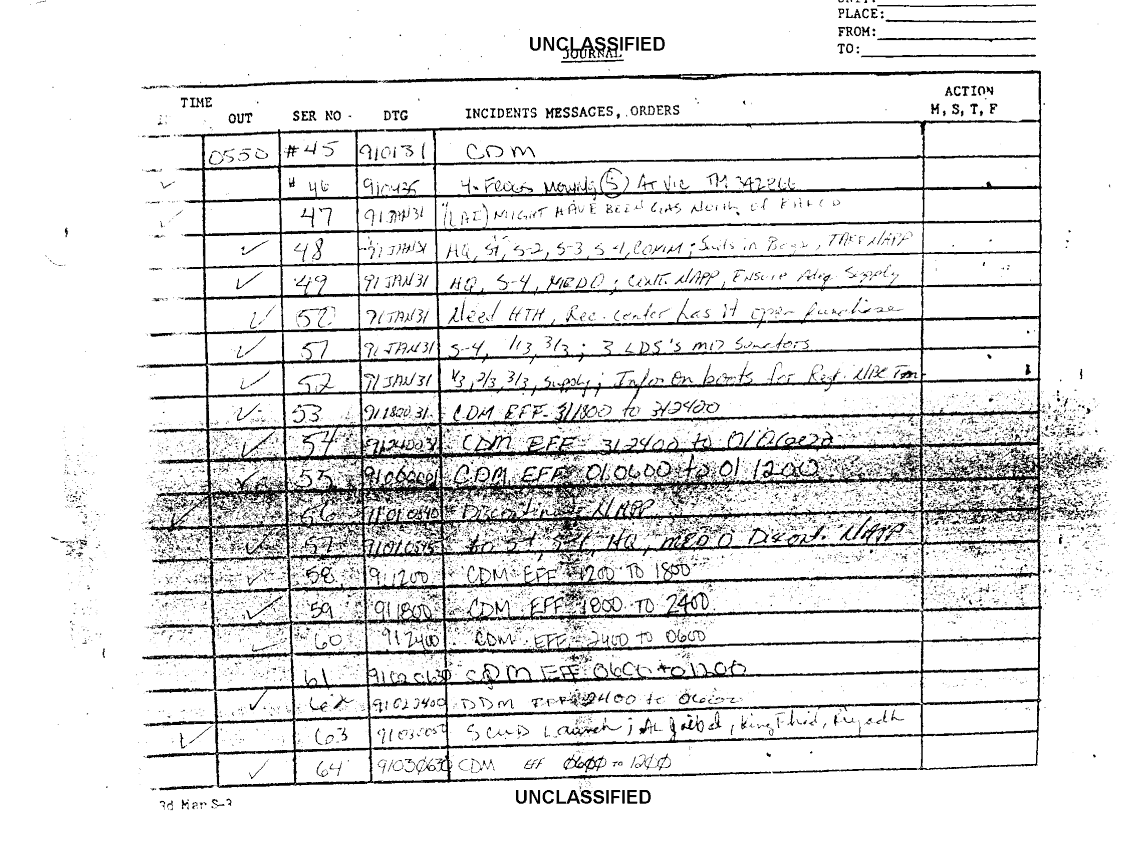 PLACE:
FROM:
TO:
UNCLASSIFIED
JOURNAL
TIME
OUT SER NO - DTG INCIDENTS MESSAGES, ORDERS ACTION M, S, T, F
0550 #45 910131 CDM
# 46 4- Frogs Moving (5) At Vic TM
47 91JAN31 (LAI) MIGHT HAVE BEEN GAS North of
48 91JAN31 HQ, S1, S-2, S-3, S-4, COMM; Suits in Bags, TAKE NAPP
49 91JAN31 HQ, S-4, MEDO; Cont. NAPP, Ensure Adeq. Supply
50 91JAN31 Need HTH, Rec. center has it open purchase
51 91JAN31 S-4, 1/3, 3/3; 3 LDS's
52 91JAN31 1/3, 2/3, 3/3, Supply; Info on boots for Reg. NBC Tm
53 CDM EFF 311800 to 312400
54 CDM EFF 312400 to
55 CDM EFF 010600 to 01 1200
56 Discontinue NAPP
57 HQ, MEDO Discont. NAPP
58 911200 CDM EFF 1200 TO 1800
59 911800 CDM EFF 1800 TO 2400
60 912400 CDM EFF 2400 TO 0600
61 CDM EFF 0600 to 1200
62 91022400 2400 to 0600
63 SCUD Launch; Al Jubail, King Fhid, Riyadh
64 91030630 CDM EFF 0600 to 1200
3d Mar S-3
UNCLASSIFIED